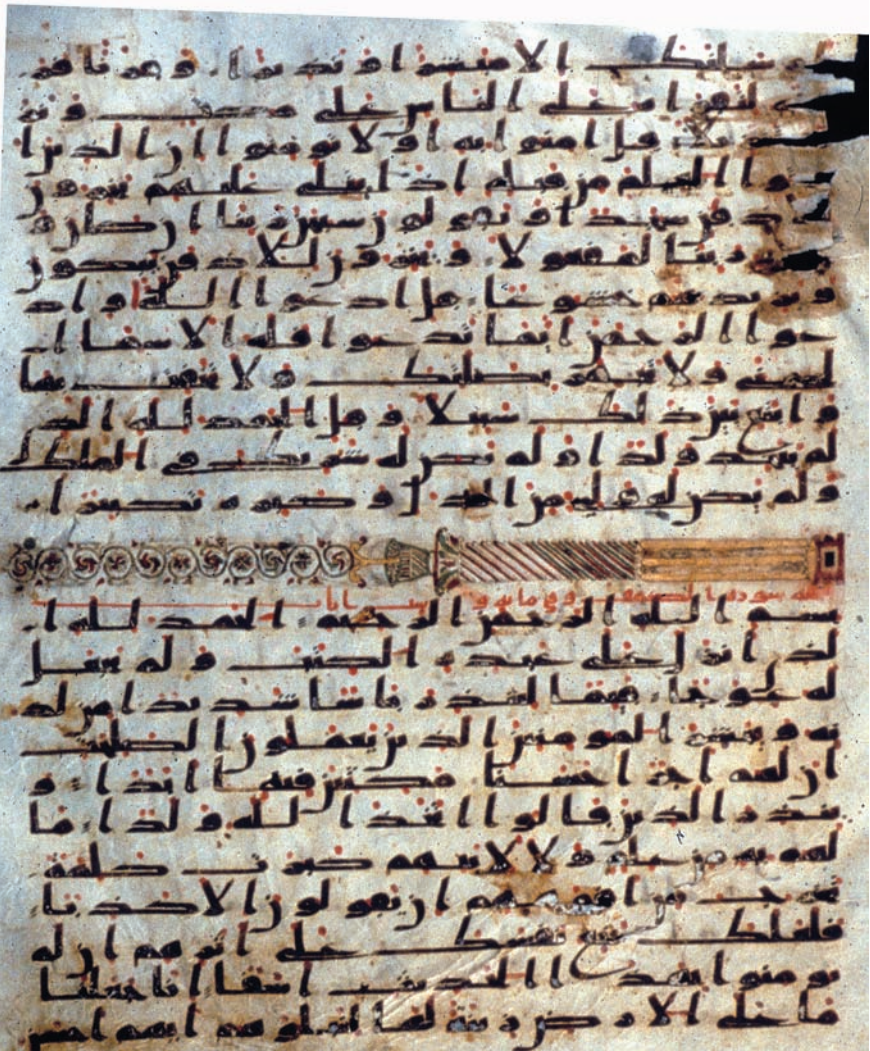 سلنك الا مبشرا ونذيرا وقرانا فر
لتقراه على الناس على مكث ونز
يلا قل امنوا به او لا تومنوا ان الذين ا
وتوا العلم من قبله اذا يتلى عليهم يخرون
سجدا ويقولون سبحن ربنا ان كان و
عد ربنا لمفعولا ويخرون للاذقان يبكون
ويزيدهم خشوعا قل ادعوا الله او اد
عوا الرحمن ايا ما تدعوا فله الاسما ا
لحسنى ولا تجهر بصلتك ولا تخافت بها
وابتغ بين ذلك سبيلا وقل الحمد لله الذي
لم يتخذ ولدا ولم يكن له شريك في الملك
ولم يكن له ولي من الذل وكبره تكبيرا
سورة الكهف وماية و ايات
بسم الله الرحمن الرحيم الحمد لله ا
لذي انزل على عبده الكتب ولم يجعل
له عوجا قيما لينذر باسا شديدا من لد
نه ويبشر المومنين الذين يعملون الصلحت
ان لهم اجرا حسنا مكثين فيه ابدا و
ينذر الذين قالوا اتخذ الله ولدا ما
لهم به من علم ولا لابيهم كبرت كلمة
تخرج من افوههم ان يقولون الا كذبا
فلعلك بخع نفسك على اثرهم ان لم
يومنوا بهذا الحديث اسفا انا جعلنا
ما على الارض زينة لها لنبلوهم ايهم احسن